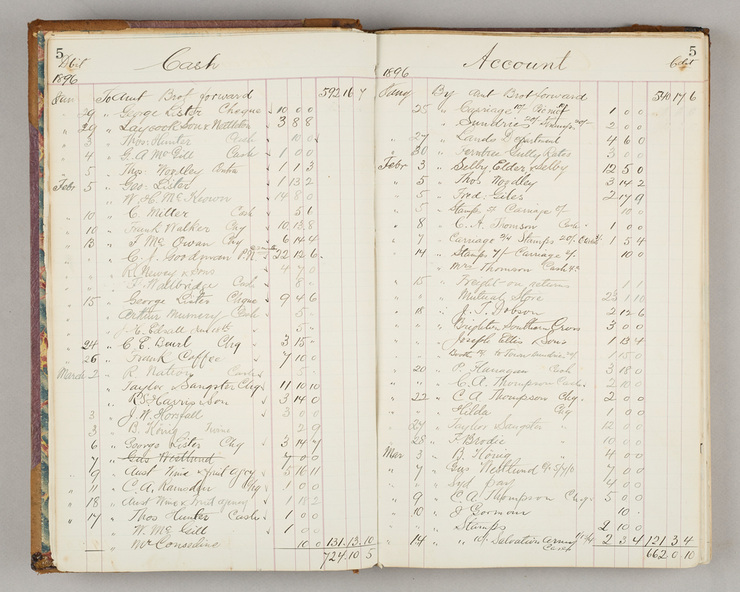 5
Debit
Cash
1896
Jan To Amt Brot forward 592 16 7
29 " George Lister Cheque 10 0 0
29 " Laycock Son & Nettleton 3 8 8
" 3 " Thos Hunter Cash 10 0
" 4 " G. A. McGill Cash 1 0 0
" 5 " Thos. Wordley 1 1 3
Febr 5 " Geo. Lister 1 13 2
" W. H. McKeown 14 8 0
" 10 " C. Miller Cash 5 6
" 10 " Frank Walker Chq 10 13 8
" 13 " J McGwan Chq 6 14 4
" C. J. Goodman 22 12 6
" R Newey & Sons 4 7 0
" J. Walbridge Cash 8
" 15 " George Lister Cheque 9 4 6
" Arthur Mummery Cash 5
" J. H. Edsall 5
" 24 " C. E. Beurl Chq 3 15
" 26 " Frank Coffee 7 10 0
March 2 " R Nation Cash 5
" Taylor & Sangster Chq 11 10 10
" R. S. Harrison 3 14 0
" 3 " J. W. Horsfall 3 0 0
" 3 " B. König Wine 2 9
" 6 " George Lister Chq 3 14 4
" 7 " Gus Westlund 4 0 0
" 9 " Aust Wine & fruit agcy 5 16 11
" 11 " C. A. Ramsden Chq 1 0 0
" 18 " Aust Wine & fruit agency 1 18 2
" 17 " Thos Hunter Cash 1 0 0
" W. McGill 1 0 0
" Mr Considine 10 0 131 13 10
724 10 5
5
Account
Credit
1896
By Amt Brot forward 540 17 6
25 " Carriage 1 0 0
" Sundries 2 0 0
" 27 " Lands Department 4 6 0
" 30 " Ferntree Gully Rates 3 0 0
Febr 3 " Selby Elder & Selby 12 5 0
" 5 " Thos Wordley 3 14 2
" 5 " Fred. Giles 2 17 9
" 5 " Stamps Carriage 10 0
" 8 " C. A. Thomson Cash 1 0 0
" 7 " Carriage Stamps 1 5 4
" 14 " Stamps Carriage 10 0
" Mrs Thomson Cash
" 15 " Freight on returns 1 1
" Mutual Store 23 1 10
" 18 " J. T. Dobson 2 12 6
" Brighton Southern Cross 3 0 0
" Joseph Ellis & Sons 1 13 4
" 1 15 0
" 20 " P. Flanagan Cash 3 18 0
" C. A. Thompson Cash 2 10 0
" 22 " C A Thompson Chq 2 0 0
" Hilda Chq 1 0 0
" 27 " Taylor Sangster 12 0 0
" 28 " F. Brodie 10 0 0
Mar 3 " B. König 4 0 0
" 7 " Gus Westlund 7 0 0
" Syd 4 0 0
" 9 " C A Thompson Chq 5 0 0
" 10 " J Gormoin 10
" Stamps 2 10 0
" 14 " " Salvation Army 2 3 4 121 3 4
662 0 10